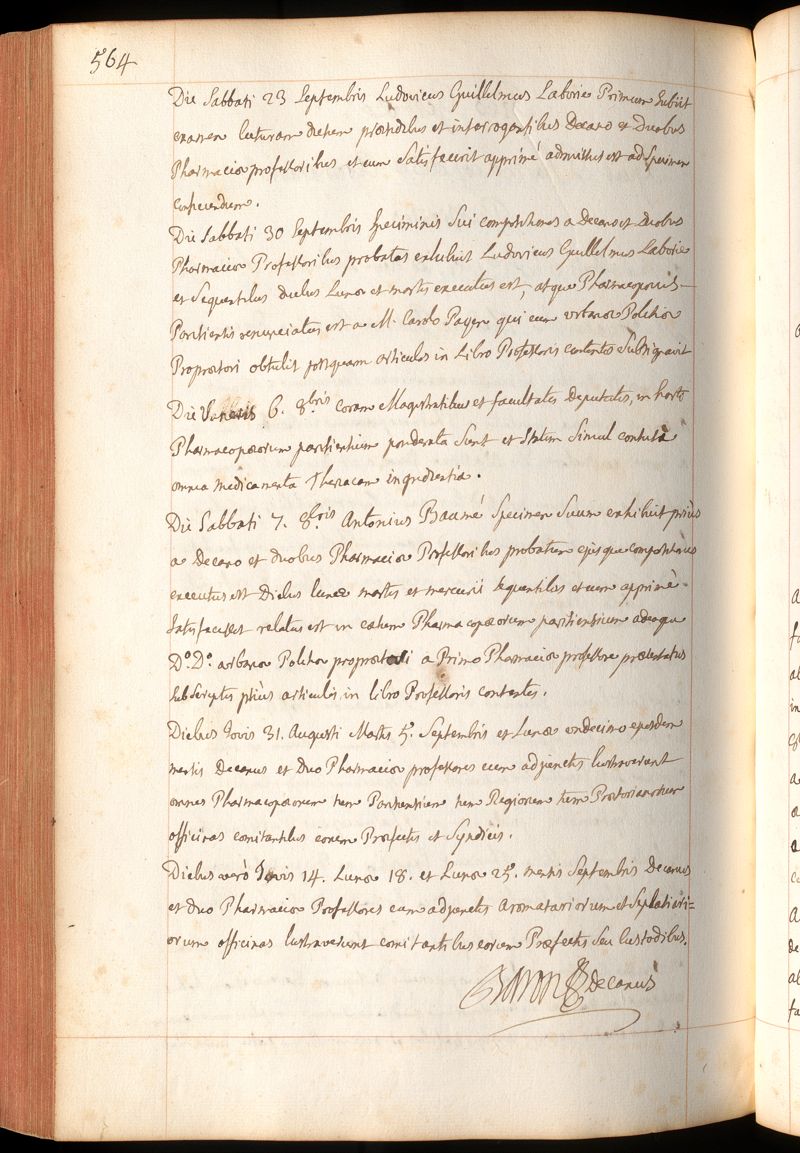 564
Die Sabbati 23 Septembris Ludovicus Guillelmus Laborie Primum Subiit
examen lecturam dictum præsidibus et interrogantibus Decano et Duobus
Pharmaciæ professoribus et cum Satisfecerit apprimè admissus est ad Specimen
conficiendum.
Die Sabbati 30 Septembris Speciminis Sui compositiones a Decano et Duobus
Pharmaciæ Professoribus probatas exhibuit Ludovicus Guillelmus Laborie
et Sequentibus diebus Lunæ et martis executus est, atque Pharmacopœus
Parisiensis renunciatus est a M. Carolo Payen qui eum urbanæ Politiæ
Proprætori obtulit postquam articulos in Libro Professoris contentos Subsignavit
Die Veneris 6. 8bris coram Magistratibus et facultatis deputatis, in horto
Pharmacopœorum parisientium ponderata Sunt et Statim Simul contusa
omnia medicamenta Theriacam ingredientia.
Die Sabbati 7. 8bris Antonius Baumé Specimen Suum exhibuit priùs
a Decano et duobus Pharmaciæ Professoribus probatum ejusque compositiones
executus est Diebus lunæ martis et mercurii Sequentibus et cum apprimè
Satisfecisset relatus est in cœtum Pharmacopœorum parisientium adeoque
D° D° urbanæ Politiæ proprætori a Primo Pharmaciæ professore præsentatus
Subscriptis priùs articulis in libro Professoris contentis.
Diebus Jovis 31. Augusti Martis 5. Septembris et Lunæ undecimo ejusdem
mensis Decanus et Duo Pharmaciæ professores cum adjunctis lustraverunt
omnes Pharmacopœorum tum Parisientium tum Regiorum tum Prætorianorum
officinas comitantibus eorum Præfectis et Syndicis.
Diebus verò Jovis 14. Lunæ 18. et Lunæ 25. mensis Septembris Decanus
et Duo Pharmaciæ Professores cum adjunctis Aromatariorum et Seplasiari=
orum officinas lustraverunt comitantibus eorum Præfectis Seu Custodibus.
Baron Decanus